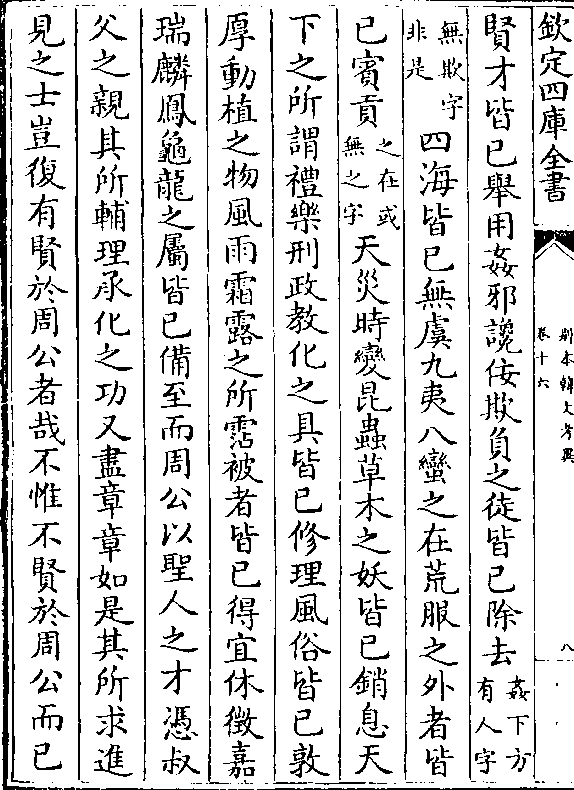 欽定四庫全書
別本韓文考異
卷十六
八
賢才皆已舉用姦邪讒佞欺負之徒皆已除去姦下方有人字
無欺字非是四海皆已無虞九夷八蠻之在荒服之外者皆
已賓貢之在或無之字天災時變昆蟲草木之妖皆已銷息天
下之所謂禮樂刑政教化之具皆已修理風俗皆已敦
厚動植之物風雨霜露之所霑被者皆已得宜休徵嘉
瑞麟鳳龜龍之屬皆已備至而周公以聖人之才憑叔
父之親其所輔理承化之功又盡章章如是其所求進
見之士豈復有賢於周公者哉不惟不賢於周公而已